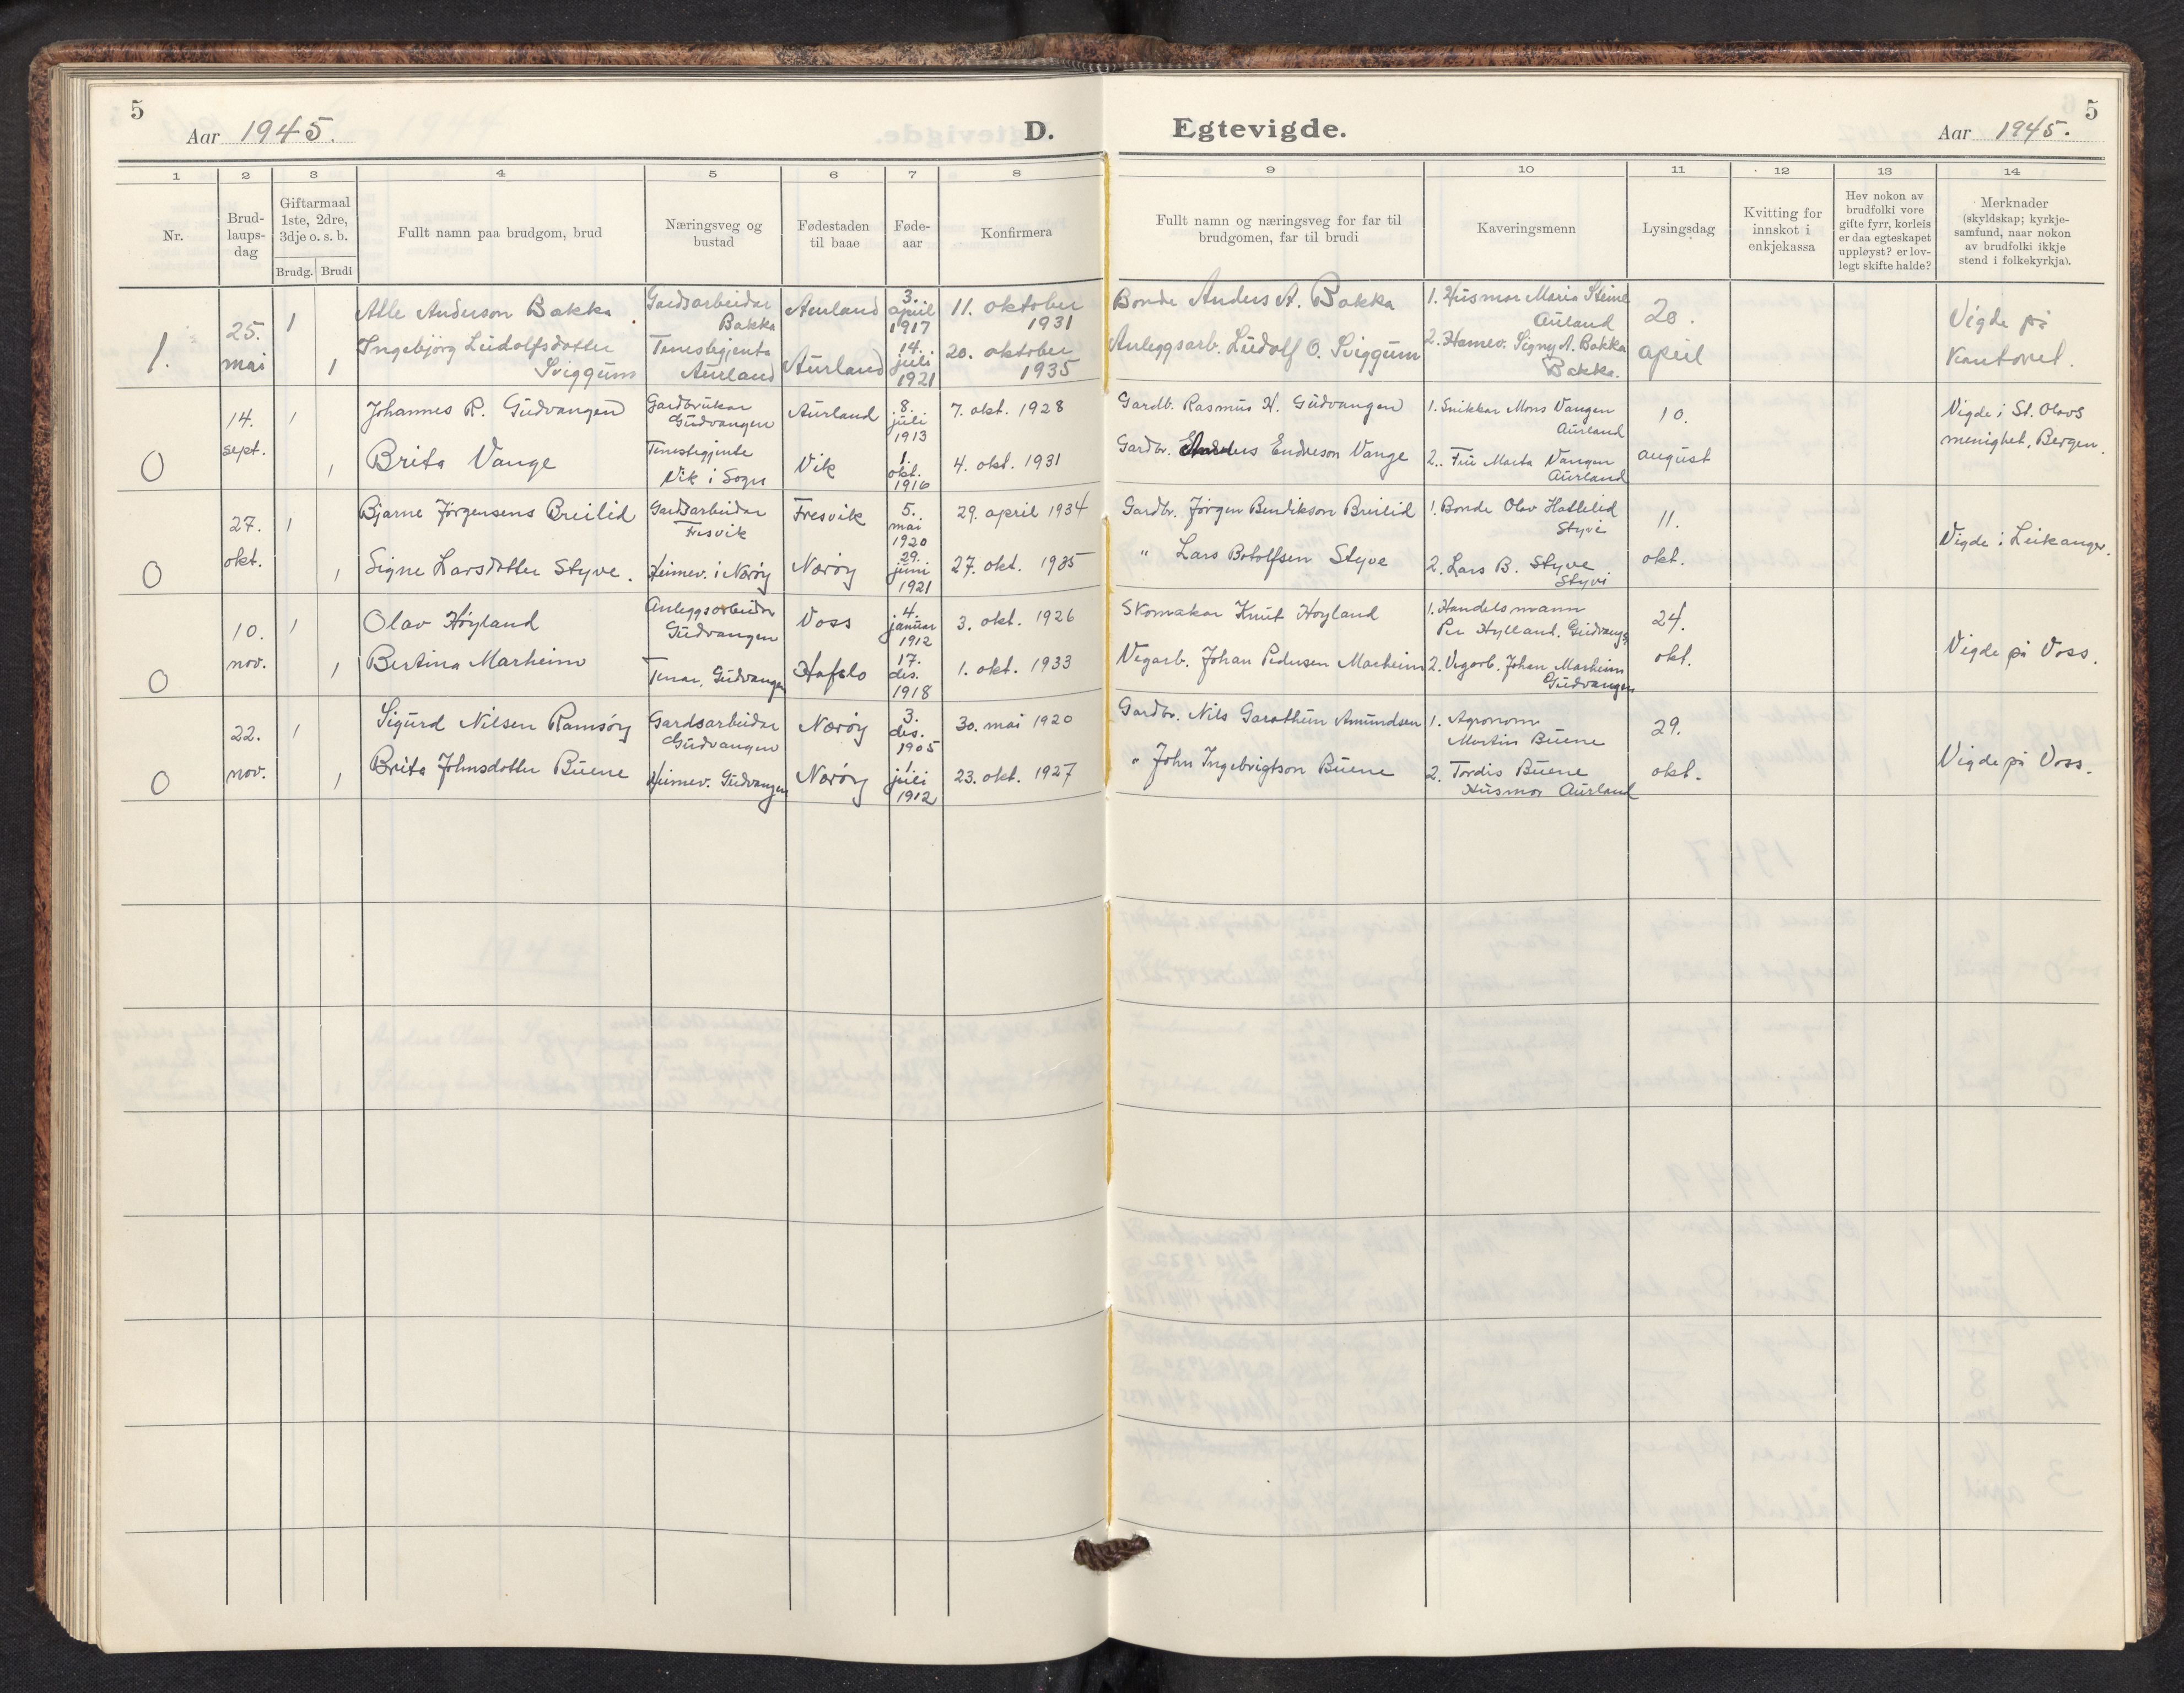 5
Aar 1945.
D.
Egtevigde.
Aar 1945.
5
1 2 3 4 5 6 7 8 9 10 11 12 13 14
Nr.
Brud-
laups-
dag
Giftarmaal
1ste, 2dre,
3dje o. s. b.
Brudg. Brudi
Fullt namn paa brudgom, brud
Næringsveg og
bustad
Fødestaden
til baae
Føde-
aar
Konfirmera
Fullt namn og næringsveg for far til
brudgomen, far til brudi
Kaveringsmenn
Lysingsdag
Kvitting for
innskot i
enkjekassa
Hev nokon av
brudfolki vore
gifte fyrr, korleis
er daa egteskapet
uppløyst? er lov-
legt skifte halde?
Merknader
(skyldskap; kyrkje-
samfund, naar nokon
av brudfolki ikkje
stend i folkekyrkja).
1.
25.
mai
1
1
Atle Anderson Bakka.
Ingebjørg Ludolfsdotter
Sviggum
Gardsarbeidar
Bakka
Tenestegjenta
Aurland
Aurland
Aurland
3.
april
1917
14.
juli
1921
11. oktober
1931
20. oktober
1935
Bonde Anders A. Bakka
Anleggsarb. Ludolf O. Sviggum
1. Husmor Maria Steine
Aurland
2. Hamev. Signy A. Bakka
Bakka.
20.
april
Vigde på
Kantoret.
0
14.
sept.
1
1
Johannes R. Gudvangen
Brita Vange
Gardbrukar
Gudvangen
Tenestegjente
Vik i Sogn
Aurland
Vik
8.
juli
1913
1.
okt.
1916
7. okt. 1928
4. okt. 1931
Gardb. Rasmus H. Gudvangen
Gardbr. Endreson Vange
1. Snikkar Mons Vangen
Aurland
2. Fru Marta Vangen
Aurland
10.
august
Vigde i St. Olavs
menighet, Bergen.
0
27.
okt.
1
1
Bjarne Jörgensens Breilid
Signe Larsdotter Styve.
Gardsarbeidar
Fresvik
Heimev. i Nærøy
Fresvik
Nærøy
5.
mai
1920
29.
juni
1921
29. april 1934
27. okt. 1935
Gardbr. Jörgen Bendikson Breilid
" Lars Botolfsen Styve
1. Bonde Olav Hatlelid
Styvi
2. Lars B. Styve
Styvi
11.
okt.
Vigde i Leikanger.
0
10.
nov.
1
1
Olav Höyland
Bertina Marheim
Anleggsarbeidar
Gudvangen
Tenar, Gudvangen
Voss
Hafslo
4.
januar
1912
17.
des.
1918
3. okt. 1926
1. okt. 1933
Skomakar Knut Høyland
Vegarb. Johan Pedersen Marheim
1. Handelsmann
Per Hylland, Gudvangen
2. Vegarb. Johan Marheim
Gudvangen
24.
okt.
Vigde på Voss.
0
22.
nov.
1
1
Sigurd Nilsen Ramsöy
Brita Johnsdotter Buene
Gardsarbeidar
Gudvangen
Heimev. Gudvangen
Nærøy
Nærøy
3.
des.
1905
1.
juli
1912
30. mai 1920
23. okt. 1927
Gardbr. Nils Garathun Amundsen
" John Ingebrigtson Buene
1. Agronom
Martin Buene
2. Tordis Buene
Husmor Aurland
29.
okt.
Vigde på Voss.